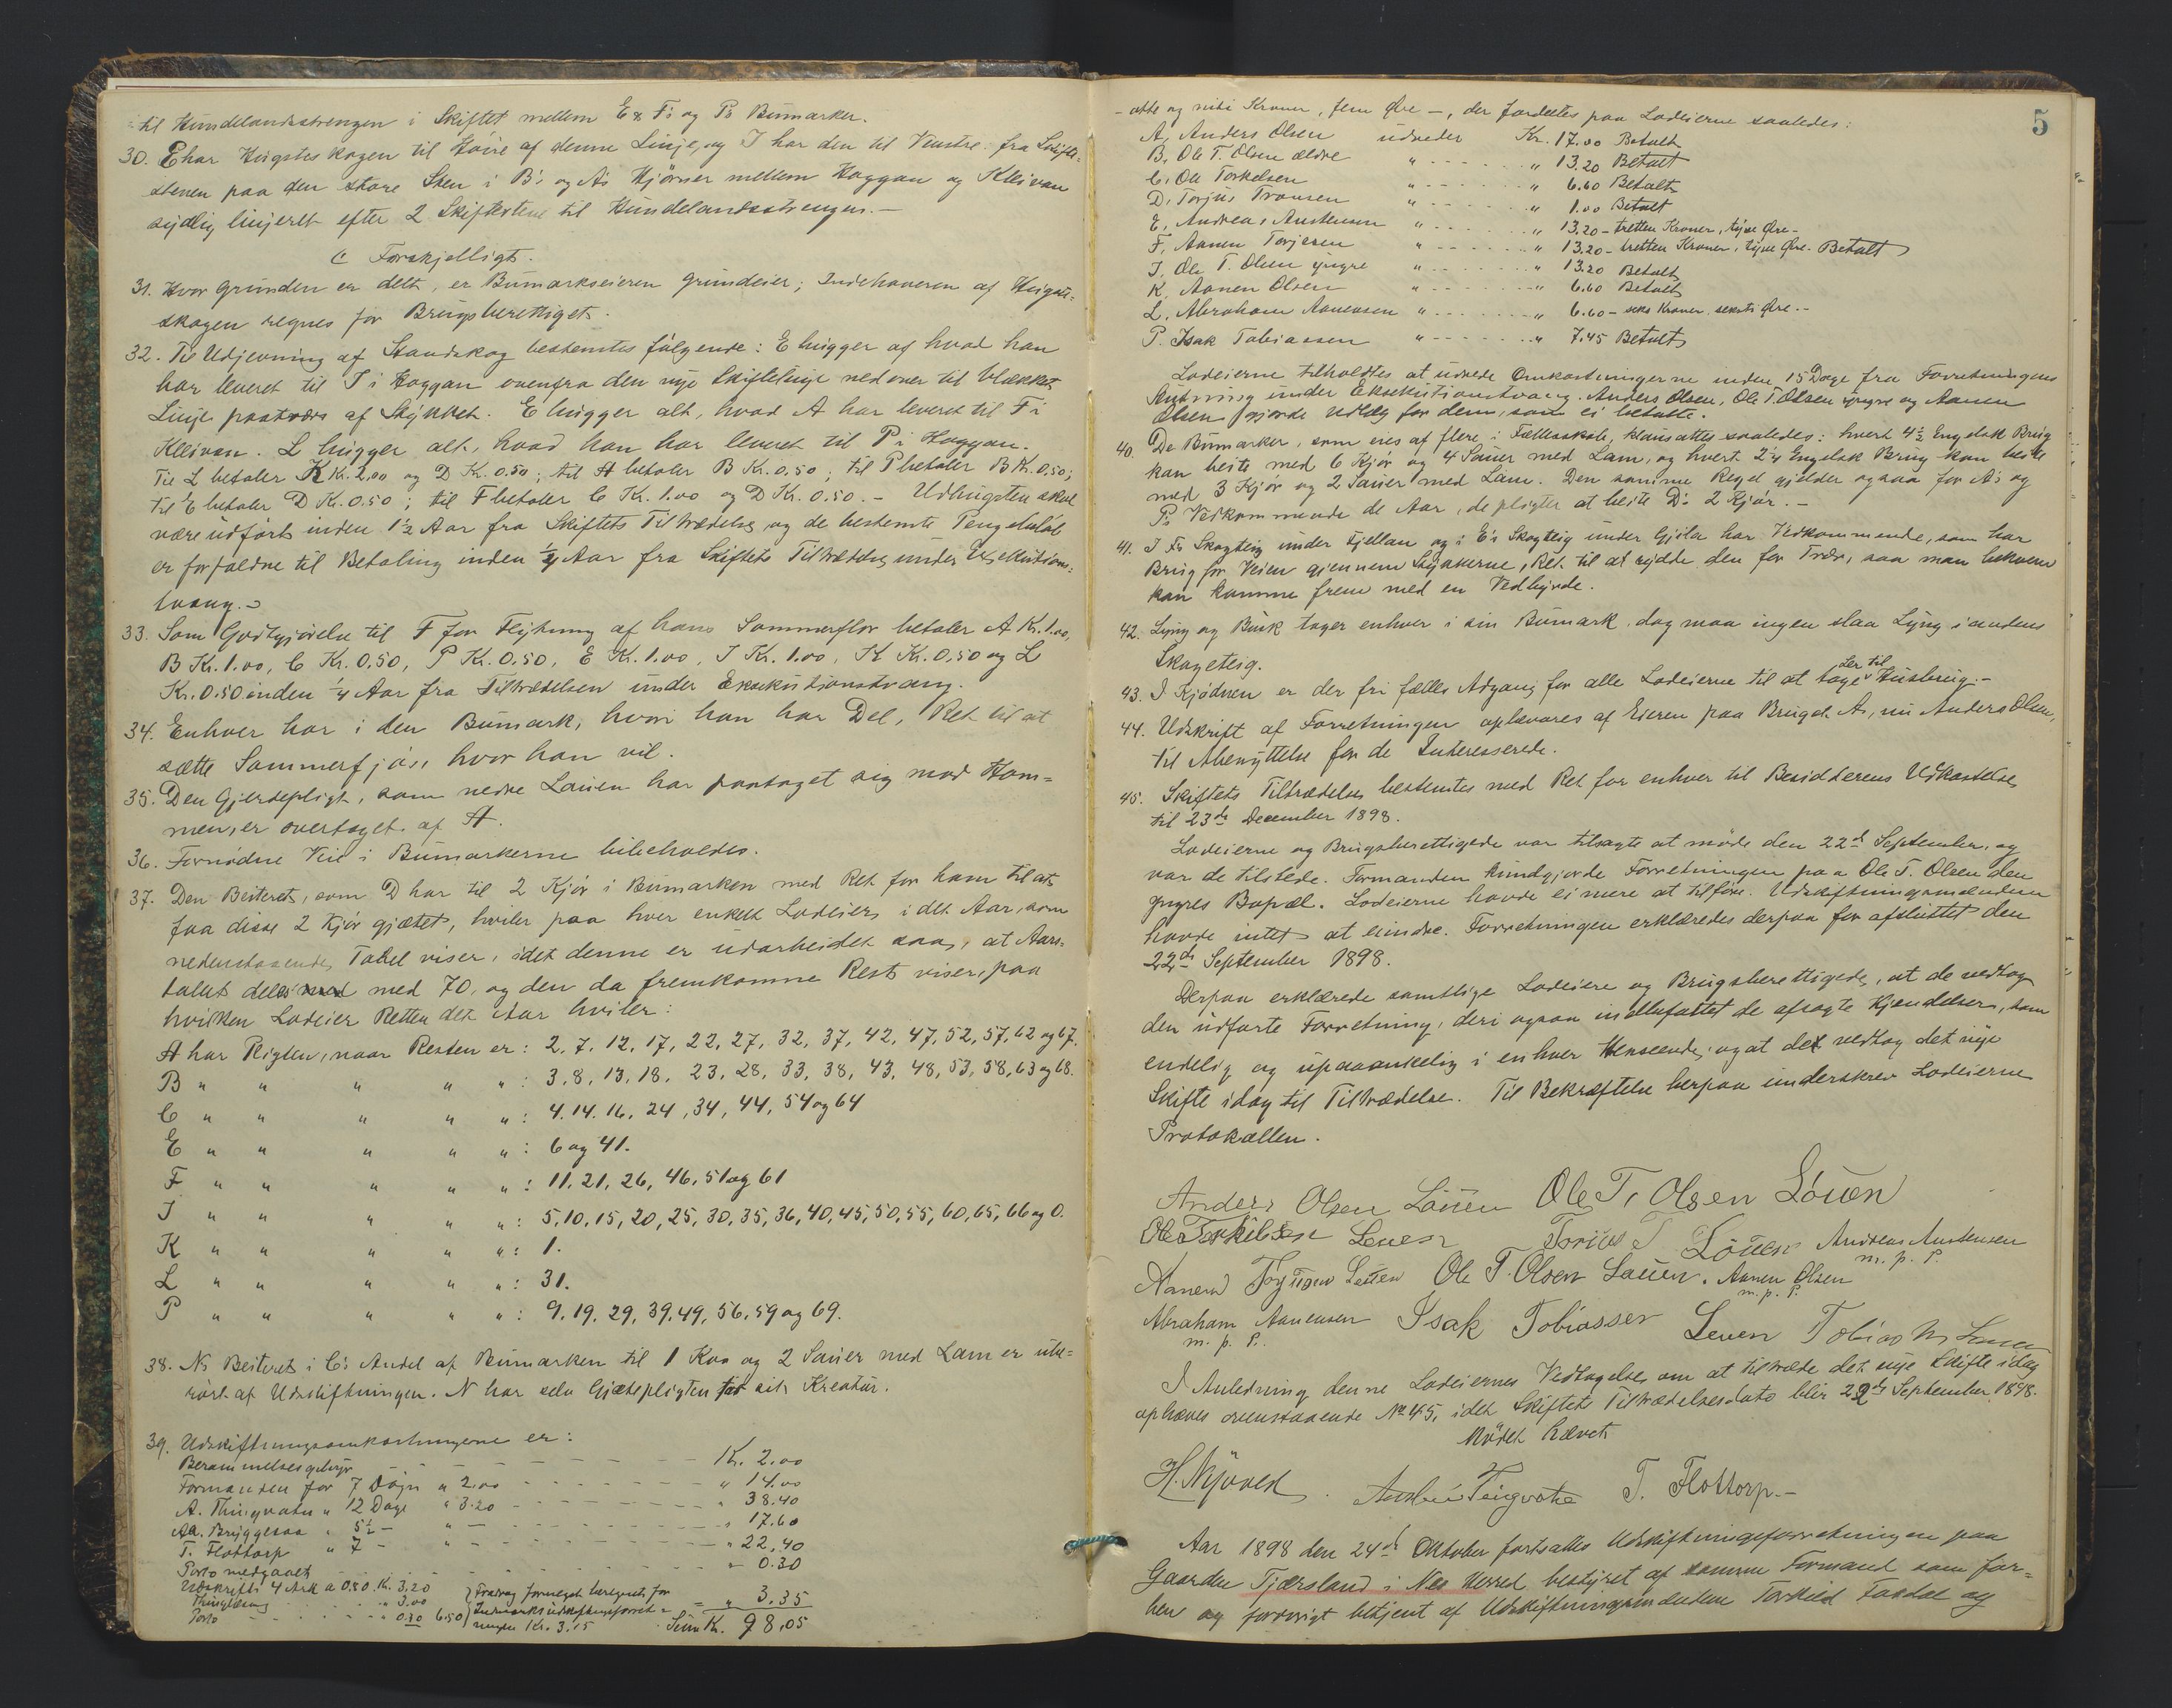 til Hundelandsstrengen i Skiftet mellem E's F's og P's Bumarker.
30. E har Hugsteskogen til Høire af denne Linje, og I har den til Venstre fra Skifte-
stenen paa den store Sten i B's og A's Hjørner mellem Hoggan og Kleivan
sydlig linjeret efter 2 Skiftestene til Hundelandsstrengen.—
C Forskjelligt.
31. Hvor Grunden er delt, er Bumarkseieren Grundeier; Indehaveren af Hugste-
skogen regnes for Brugsberettiget.
32. Til Udjevning af Standskog bestemtes følgende: E hugger af hvad han
har leveret til I i Hoggan ovenfra den nye Skiftelinje nedover til blekket
Linje paatvers af Stykket. E hugger alt, hvad A har leveret til F i
Kleivan. L hugger alt, hvad han har leveret til P i Hoggan.
Til L betaler K Kr. 2,00 og D Kr. 0,50; til A betaler B Kr. 0,50; til P betaler B Kr. 0,50;
til E betaler D Kr. 0.50; til F betaler C Kr. 1.00 og D Kr. 0.50.— Udhugsten skal
være udført inden 1½ Aar fra Skiftets Tiltrædelse, og de bestemte Pengebeløb
er forfaldne til Betaling inden ¼ Aar fra Skiftets Tiltrædelse under Exekutions-
tvang.—
33. Som Godtgjørelse til F for Flytning af hans Sommerflor betaler A Kr. 1.00,
B Kr. 1.00, C Kr. 0.50, P Kr. 0.50, E Kr. 1.00, I Kr. 1.00, K Kr. 0.50 og L
Kr. 0.50 inden ¼ Aar fra Tiltrædelsen under Eksekutionstvang.
34. Enhver har i den Bumark, hvori han har Del, Ret til at
sætte Sommerfjøs, hvor han vil.
35. Den Gjerdepligt, som nedre Lauen har paataget sig mod Hom-
men, er overtaget af A.
36. Fornødne Veie i Bumarkerne bibeholdes.
37. Den Beiteret, som D har til 2 Kjør i Bumarken med Ret for ham til at
faa disse 2 Kjør gjætet, hviler paa hver enkelt Lodeier i det Aar, som
nedenstaaende Tabel viser, idet denne er udarbeidet saa, at Aars-
tallet deles med 70, og den da fremkomne Rest viser, paa
hvilken Lodeier Retten det Aar hviler:
A har Pligten, naar Resten er: 2, 7, 12, 17, 22, 27, 32, 37, 42, 47, 52, 57, 62 og 67.
B " " " " ": 3, 8, 13, 18, 23, 28, 33, 38, 43, 48, 53, 58, 63 og 68.
C " " " " ": 4, 14, 16, 24, 34, 44, 54 og 64
E " " " " ": 6 og 41.
F " " " " ": 11, 21, 26, 46, 51 og 61
I " " " " ": 5, 10, 15, 20, 25, 30, 35, 36, 40, 45, 50, 55, 60, 65, 66 og 0.
K " " " " ": 1.
L " " " " ": 31.
P " " " " ": 9, 19, 29, 39, 49, 56, 59 og 69.
38. N's Beiteret i C's Andel af Bumarken til 1 Ko og 2 Sauer med Lam er ube-
rørt af Udskiftningen. N har selv Gjætepligten for sit Kreatur.
39. Udskiftningsomkostningerne er:
Berammelsesgebyr - - - Kr. 2.00
Formanden for 7 Døgn a 2,00 - - - " 14.00
A. Thingvatn " 12 Dage " 3.20 - - - " 38.40
Aa. Bryggesaa " 5½ — " — - - - " 17.60
T. Flottorp " 7 — " - - - " 22.40
Porto medgaaet - - - " 0.30
Udskrift 4 Ark a 0.80 Kr. 3.20
Thinglæsning " 3.00
Porto " 0.30 6.50
Fradrag formeget beregnet for
Indmarksudskiftningsforret-
ningen Kr. 3.15
= " 3.35
Sum Kr. 98.05
5
- otte og niti Kroner, fem Øre —, der fordeltes paa Lodeierne saaledes:
A, Anders Olsen udreder Kr. 17.00 Betalt
B, Ole T. Olsen ældre " - - - " 13.20 Betalt
C, Ole Torkelsen " - - - " 6.60 Betalt
D, Torjus Tronsen " - - - " 1.00 Betalt
E, Andreas Austensen " - - - " 13.20 - tretten Kroner, tyve Øre -
F, Aanen Torjesen " - - - " 13.20 - tretten Kroner, tyve Øre. Betalt
I, Ole T. Olsen yngre " - - - " 13.20 Betalt
K, Aanen Olsen " - - - " 6.60 Betalt
L, Abraham Aanensen " - - - " 6.60 - seks Kroner seksti Øre.—
P. Isak Tobiassen " - - - " 7.45 Betalt
Lodeierne tilholdtes at udrede Omkostningerne inden 15 Dage fra Forretningens
Slutning under Eksekutionstvang. Anders Olsen, Ole T. Olsen yngre og Aanen
Olsen gjorde Udlæg for dem, som ei betalte.
40. De Bumarker, som eies af flere i Fællesskab, klausattes saaledes: hvert 4½ Engelsk Brug
kan beite med 6 Kjør og 4 Sauer med Lam, og hvert 2¼ Engelsk Brug kan beite
med 3 Kjør og 2 Sauer med Lam. Den samme Regel gjelder ogsaa for A's og
P's Vedkommende de Aar, de pligter at beite D's 2 Kjør.—
41. I F's Skogteig under Fjellan og i E's Skogteig under Gjila har Vedkommende, som har
Brug for Veien gjennem Stykkerne, Ret til at rydde den for Trær, saa man bekvemt
kan komme frem med en Vedbyrde.
42. Lyng og Busk tager enhver i sin Bumark, dog maa ingen slaa Lyng i andens
Skogteig.
43. I Kjødnen er der fri fælles Adgang for alle Lodeierne til at tage Ler til Husbrug.—
44. Udskrift af Forretningen opbevares af Eieren paa Bruget A, nu Anders Olsen,
til Abenyttelse for de Interesserede.
45. Skiftets Tiltrædelse bestemtes med Ret for enhver til Besidderens Udkastelse
til 23de December 1898.
Lodeierne og Brugsberettigede var tilsagte at møde den 22de September, og
var de tilstede. Formanden kundgjorde Forretningen paa Ole T. Olsen den
yngres Bopæl. Lodeierne havde ei mere at tilføre. Udskiftningsmændene
havde intet at erindre. Forretningen erklæredes derpaa for afsluttet den
22de September 1898.
Derpaa erklærede samtlige Lodeiere og Brugsberettigede, at de vedtog
den udførte Forretning, deri ogsaa indbefattet de afsagte Kjendelser, som
endelig og upaaankelig i enhver Henseende, og at de vedtog det nye
Skifte idag til Tiltrædelse. Til Bekræftelse herpaa underskrev Lodeierne
Protokollen.
Anders Olsen Löuen Ole T. Olsen Löuen
Ole Torkilsen Leuen Torius T Löuen Andreas Austensen
m. p. P.
Aanen Leuen Ole T. Olsen Lauen. Aanen Olsen
m. p. P.
Abraham Aanensen Isak Tobiassen Leuen Tobias
m. p. P.
I Anledning denne Lodeiernes Vedtagelse om at tiltræde det nye Skifte idag
ophæves ovenstaaende No 45, idet Skiftets Tiltrædelsesdato blir 22de September 1898.
Mødet hævet
T. Flottorp.—
Aar 1898 den 24de Oktober fortsattes Udskiftningsforretningen paa
Gaarden Tjærsland i Nes Herred bestyret af samme Formand som før-
hen og forøvrigt betjent af Udskiftningsmændene Torkild og